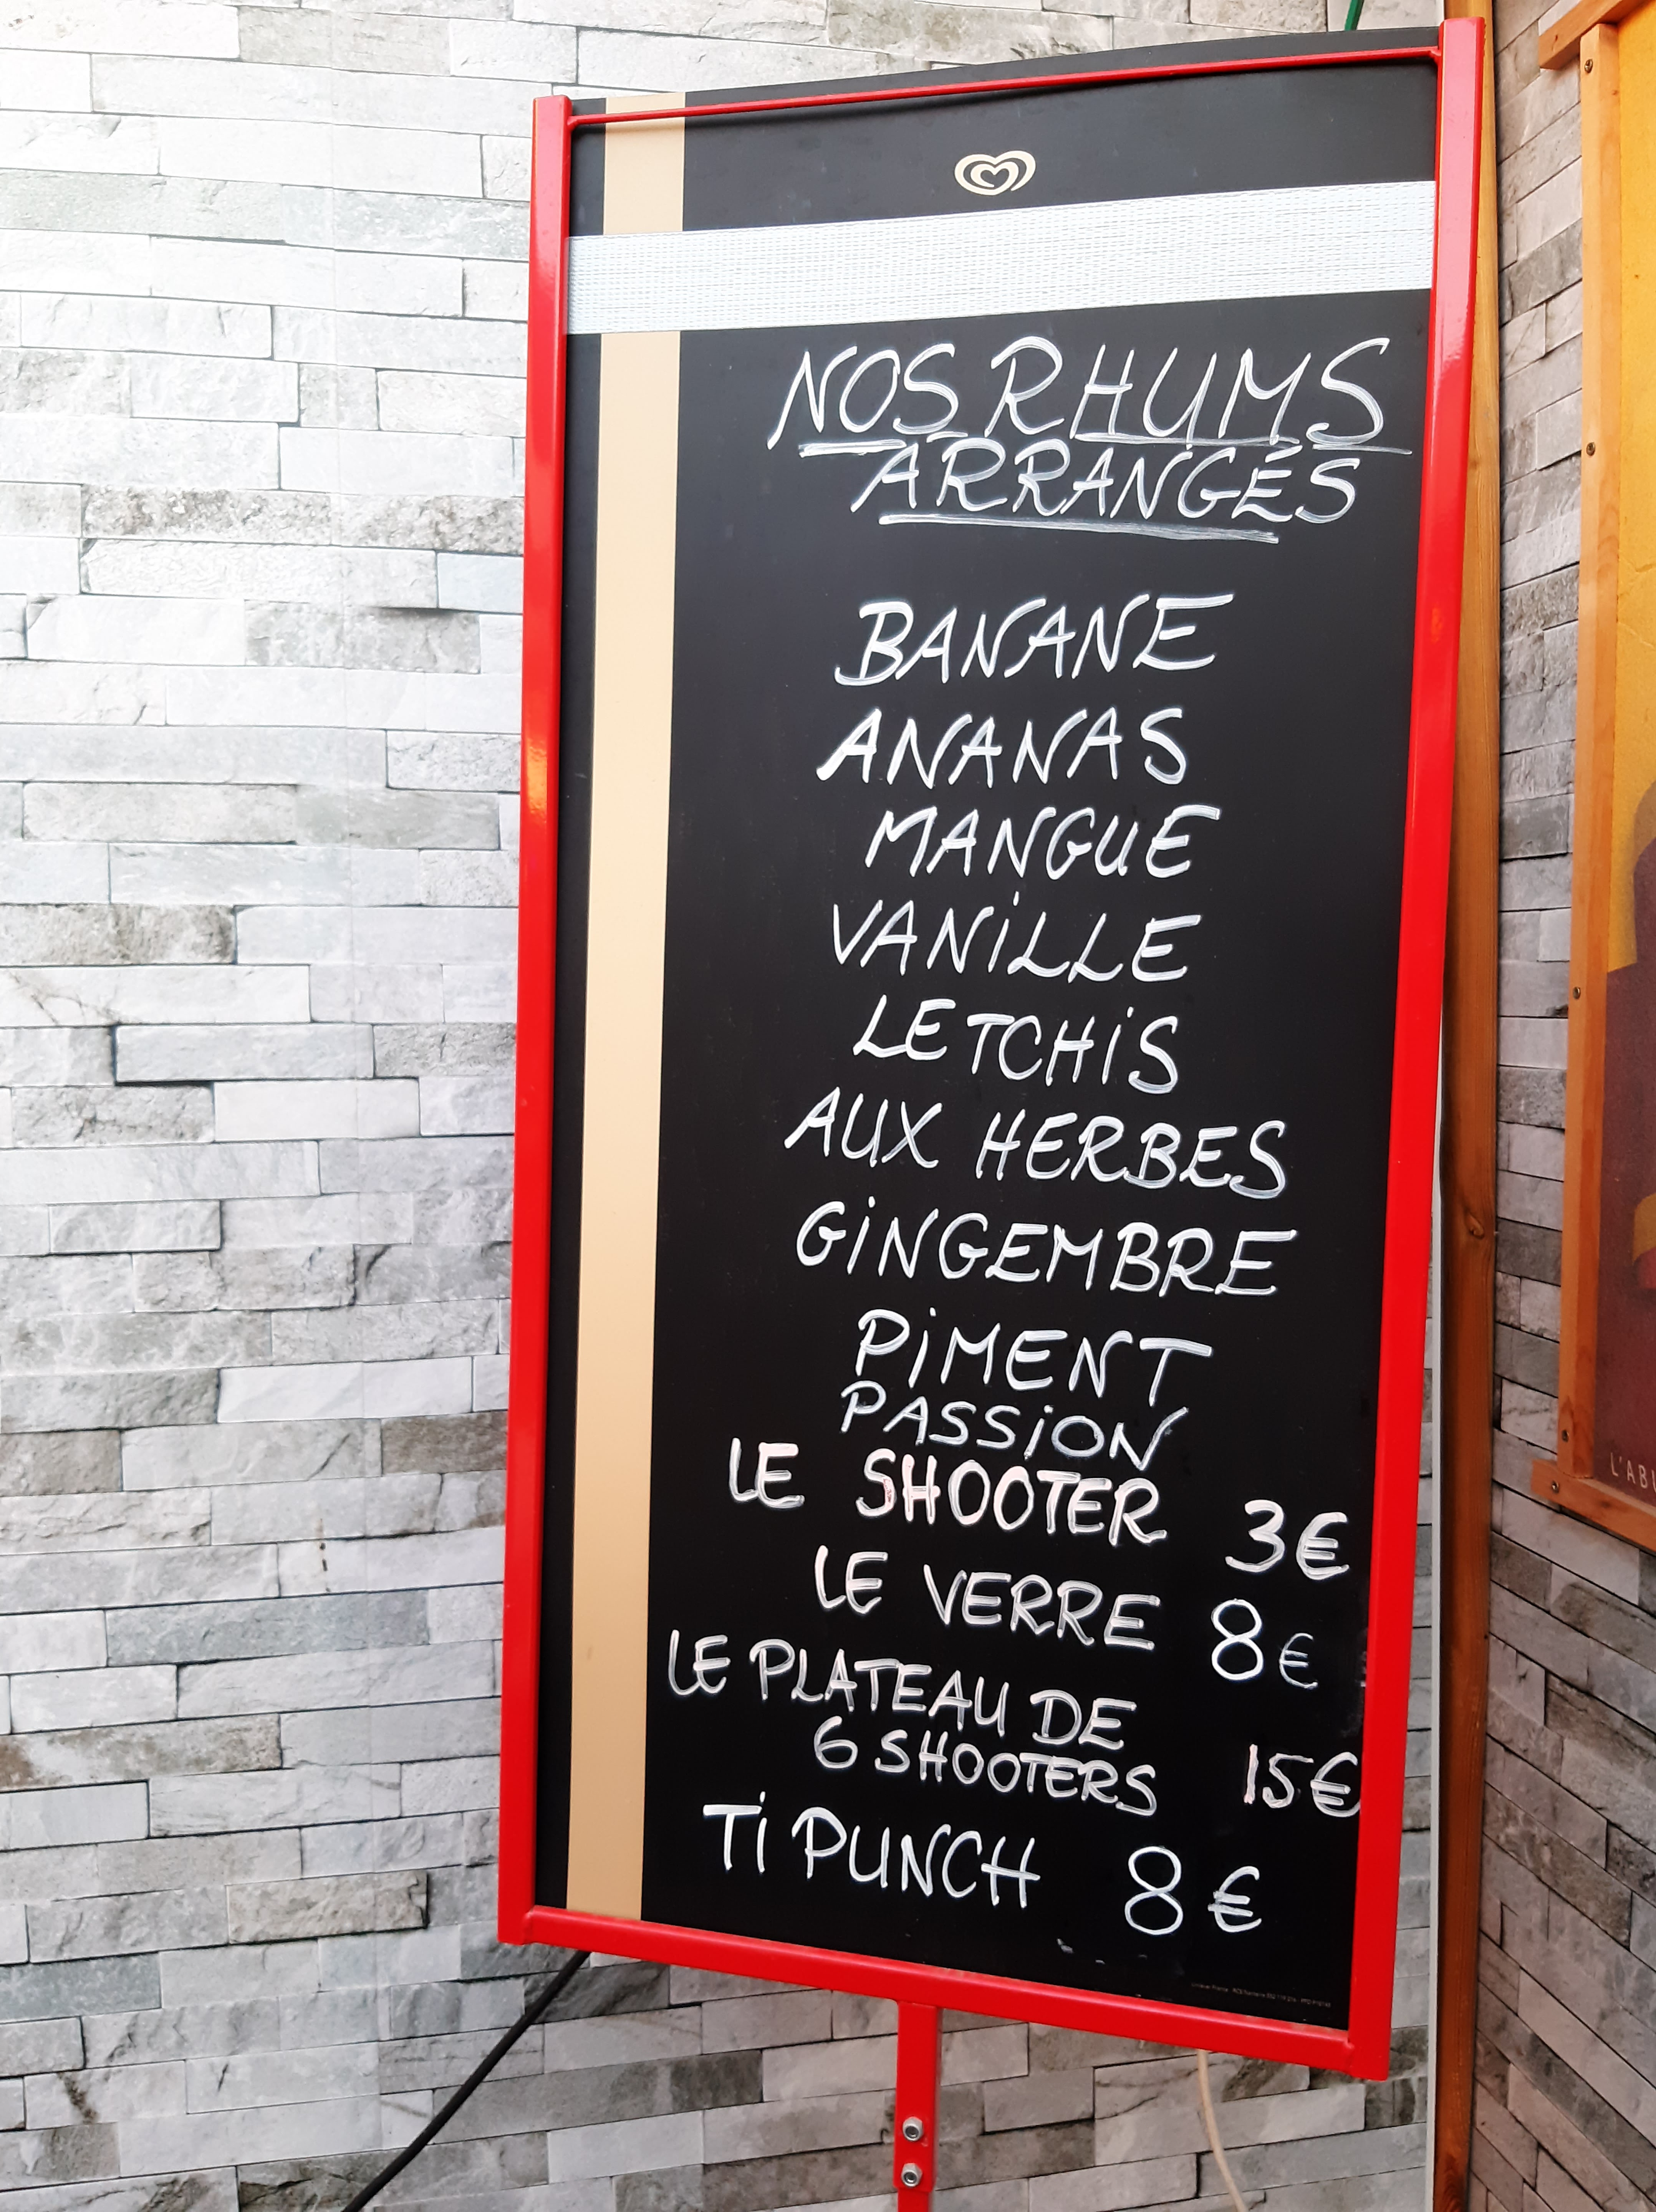 NOS RHUMS
ARRANGÉS
BANANE
ANANAS
MANGUE
VANiLLE
LETCHiS
AUX HERBES
GiNGEMBRE
PiMENT
PASSiON
LE SHOOTER 3€
LE VERRE 8€
LE PLATEAU DE
6 SHOOTERS 15€
Ti PUNCH 8€
L'ABU